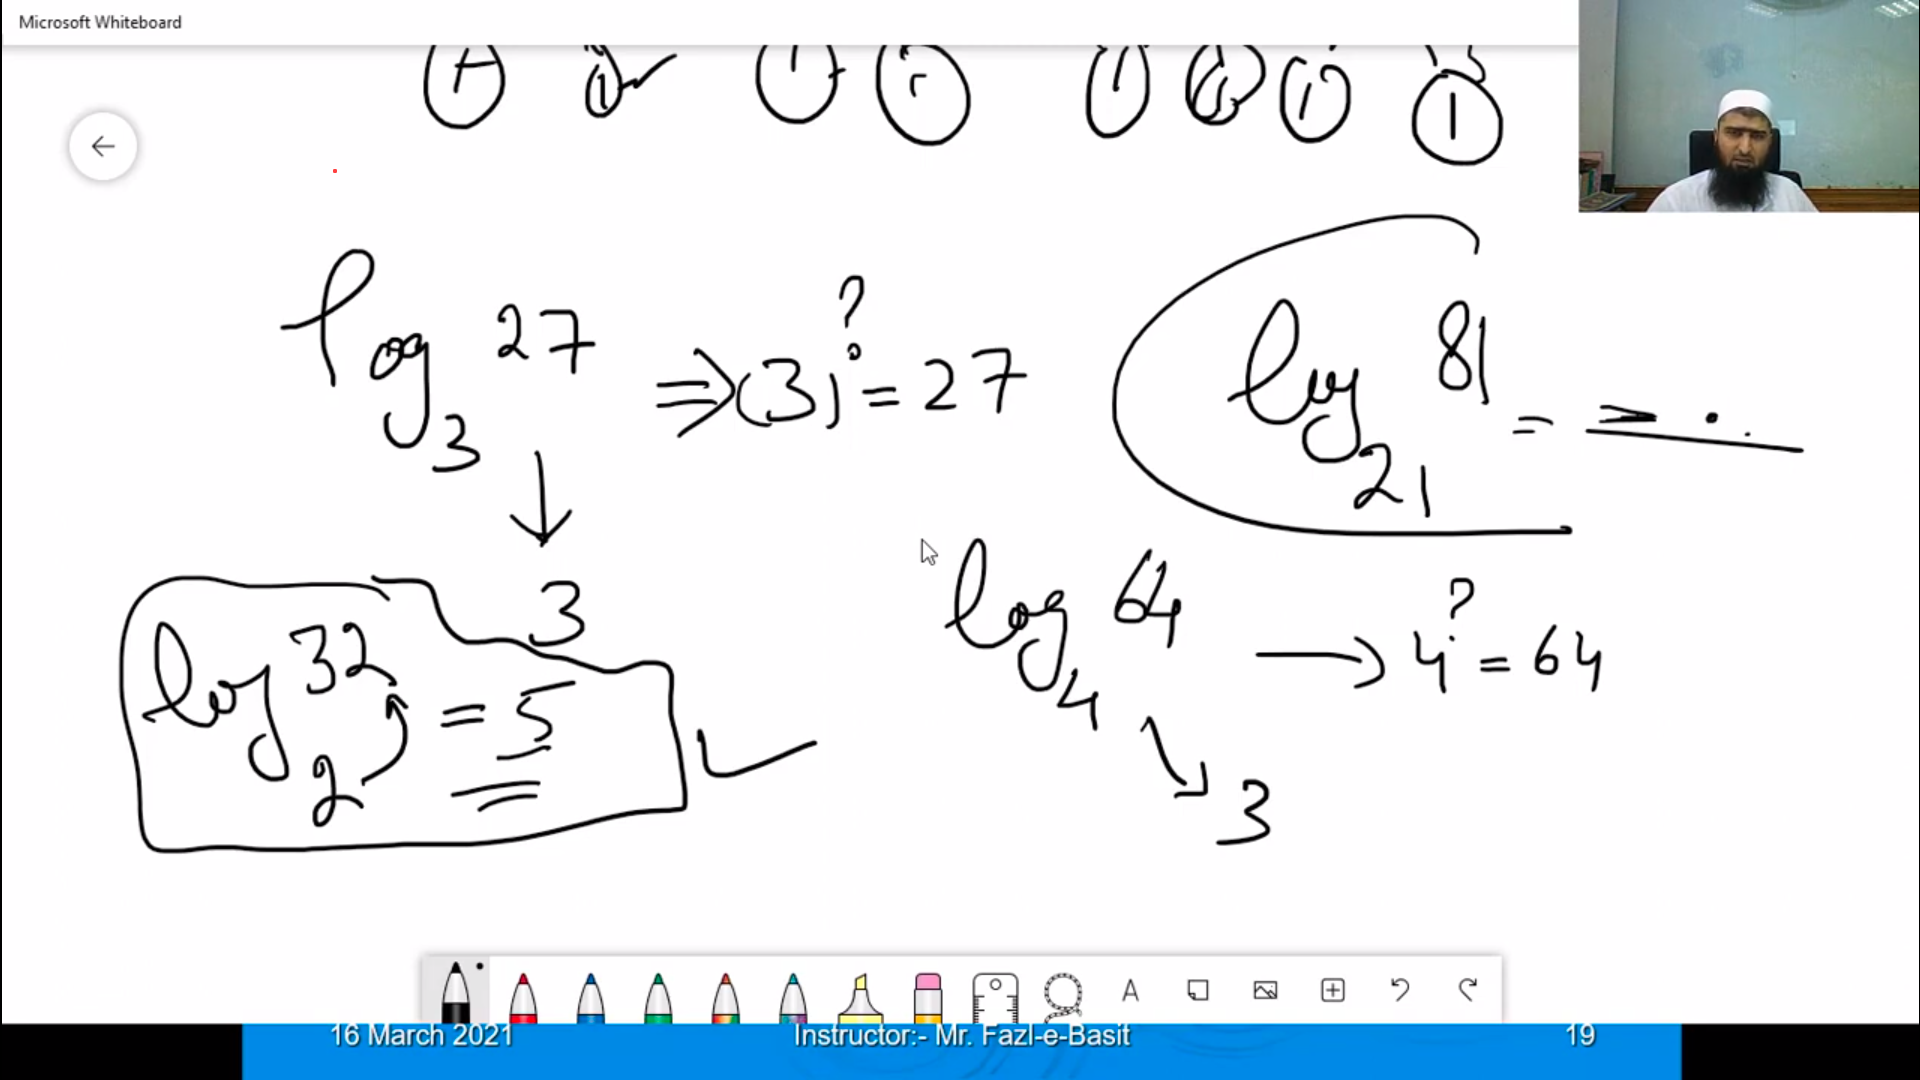 Microsoft Whiteboard
1 1 1 1 1 1
log₃ 27 ⇒ (3)^? = 27
3
log₂₁ 81 = = ..
log₂ 32 = 5
log₄ 64 → 4^? = 64
3
A
16 March 2021
Instructor:- Mr. Fazl-e-Basit
19